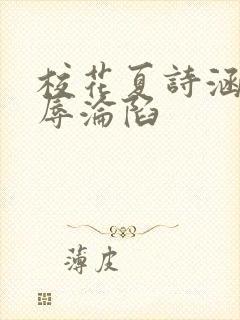 校花夏詩涵
辱淪陷
薄皮